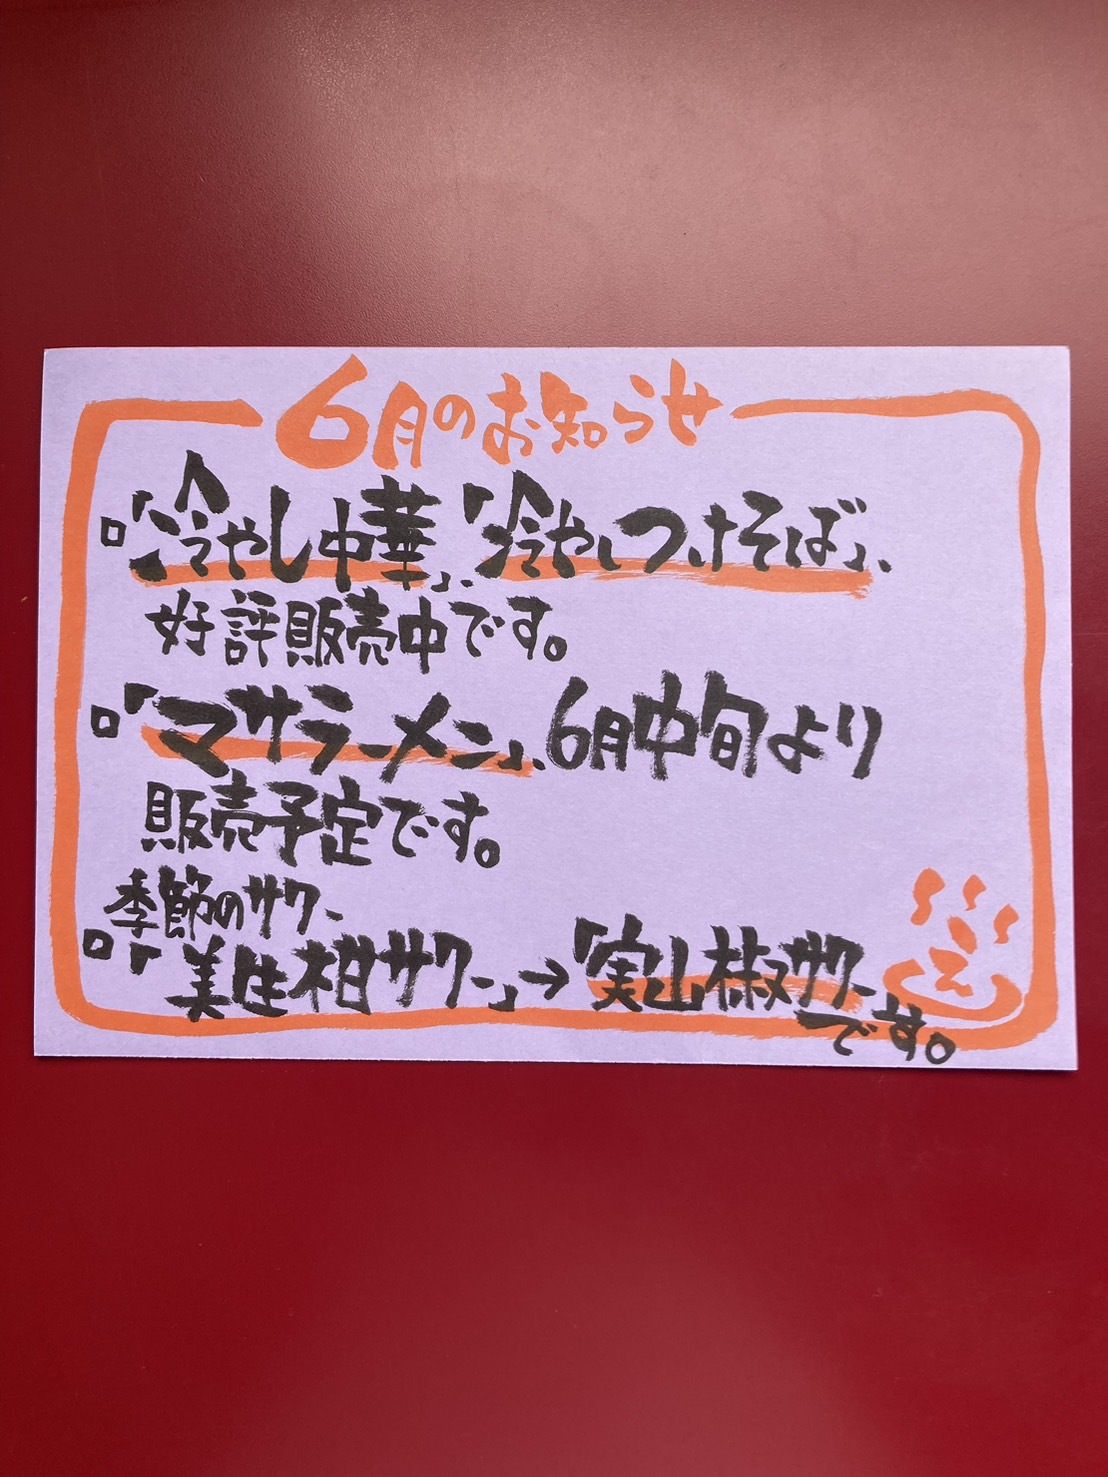 6月のお知らせ
□「冷やし中華」、「冷やしつけそば」、
好評販売中です。
□「マサラーメン」、6月中旬より
販売予定です。
季節のサワー
□「美生柑サワー」→「実山椒サワー」
です。